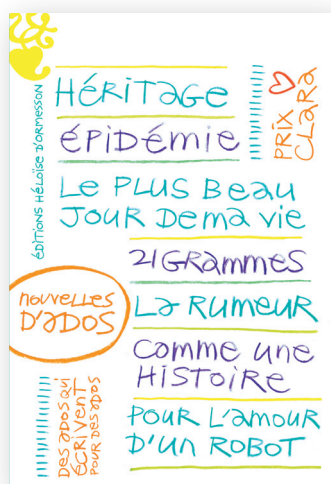 ÉDITIONS HÉLOÏSE D'ORMESSON
HÉRITAGE
ÉPIDÉMIE
PRIX
CLARA
Le PLUS Beau
JOUR De ma vie
21 GRAMMES
NOUVELLES
D'ADOS
La RUMEUR
COMME UNE
HISTOIRE
DES ADOS QUI
ÉCRIVENT
POUR DES ADOS
POUR L'AMOUR
D'UN ROBOT